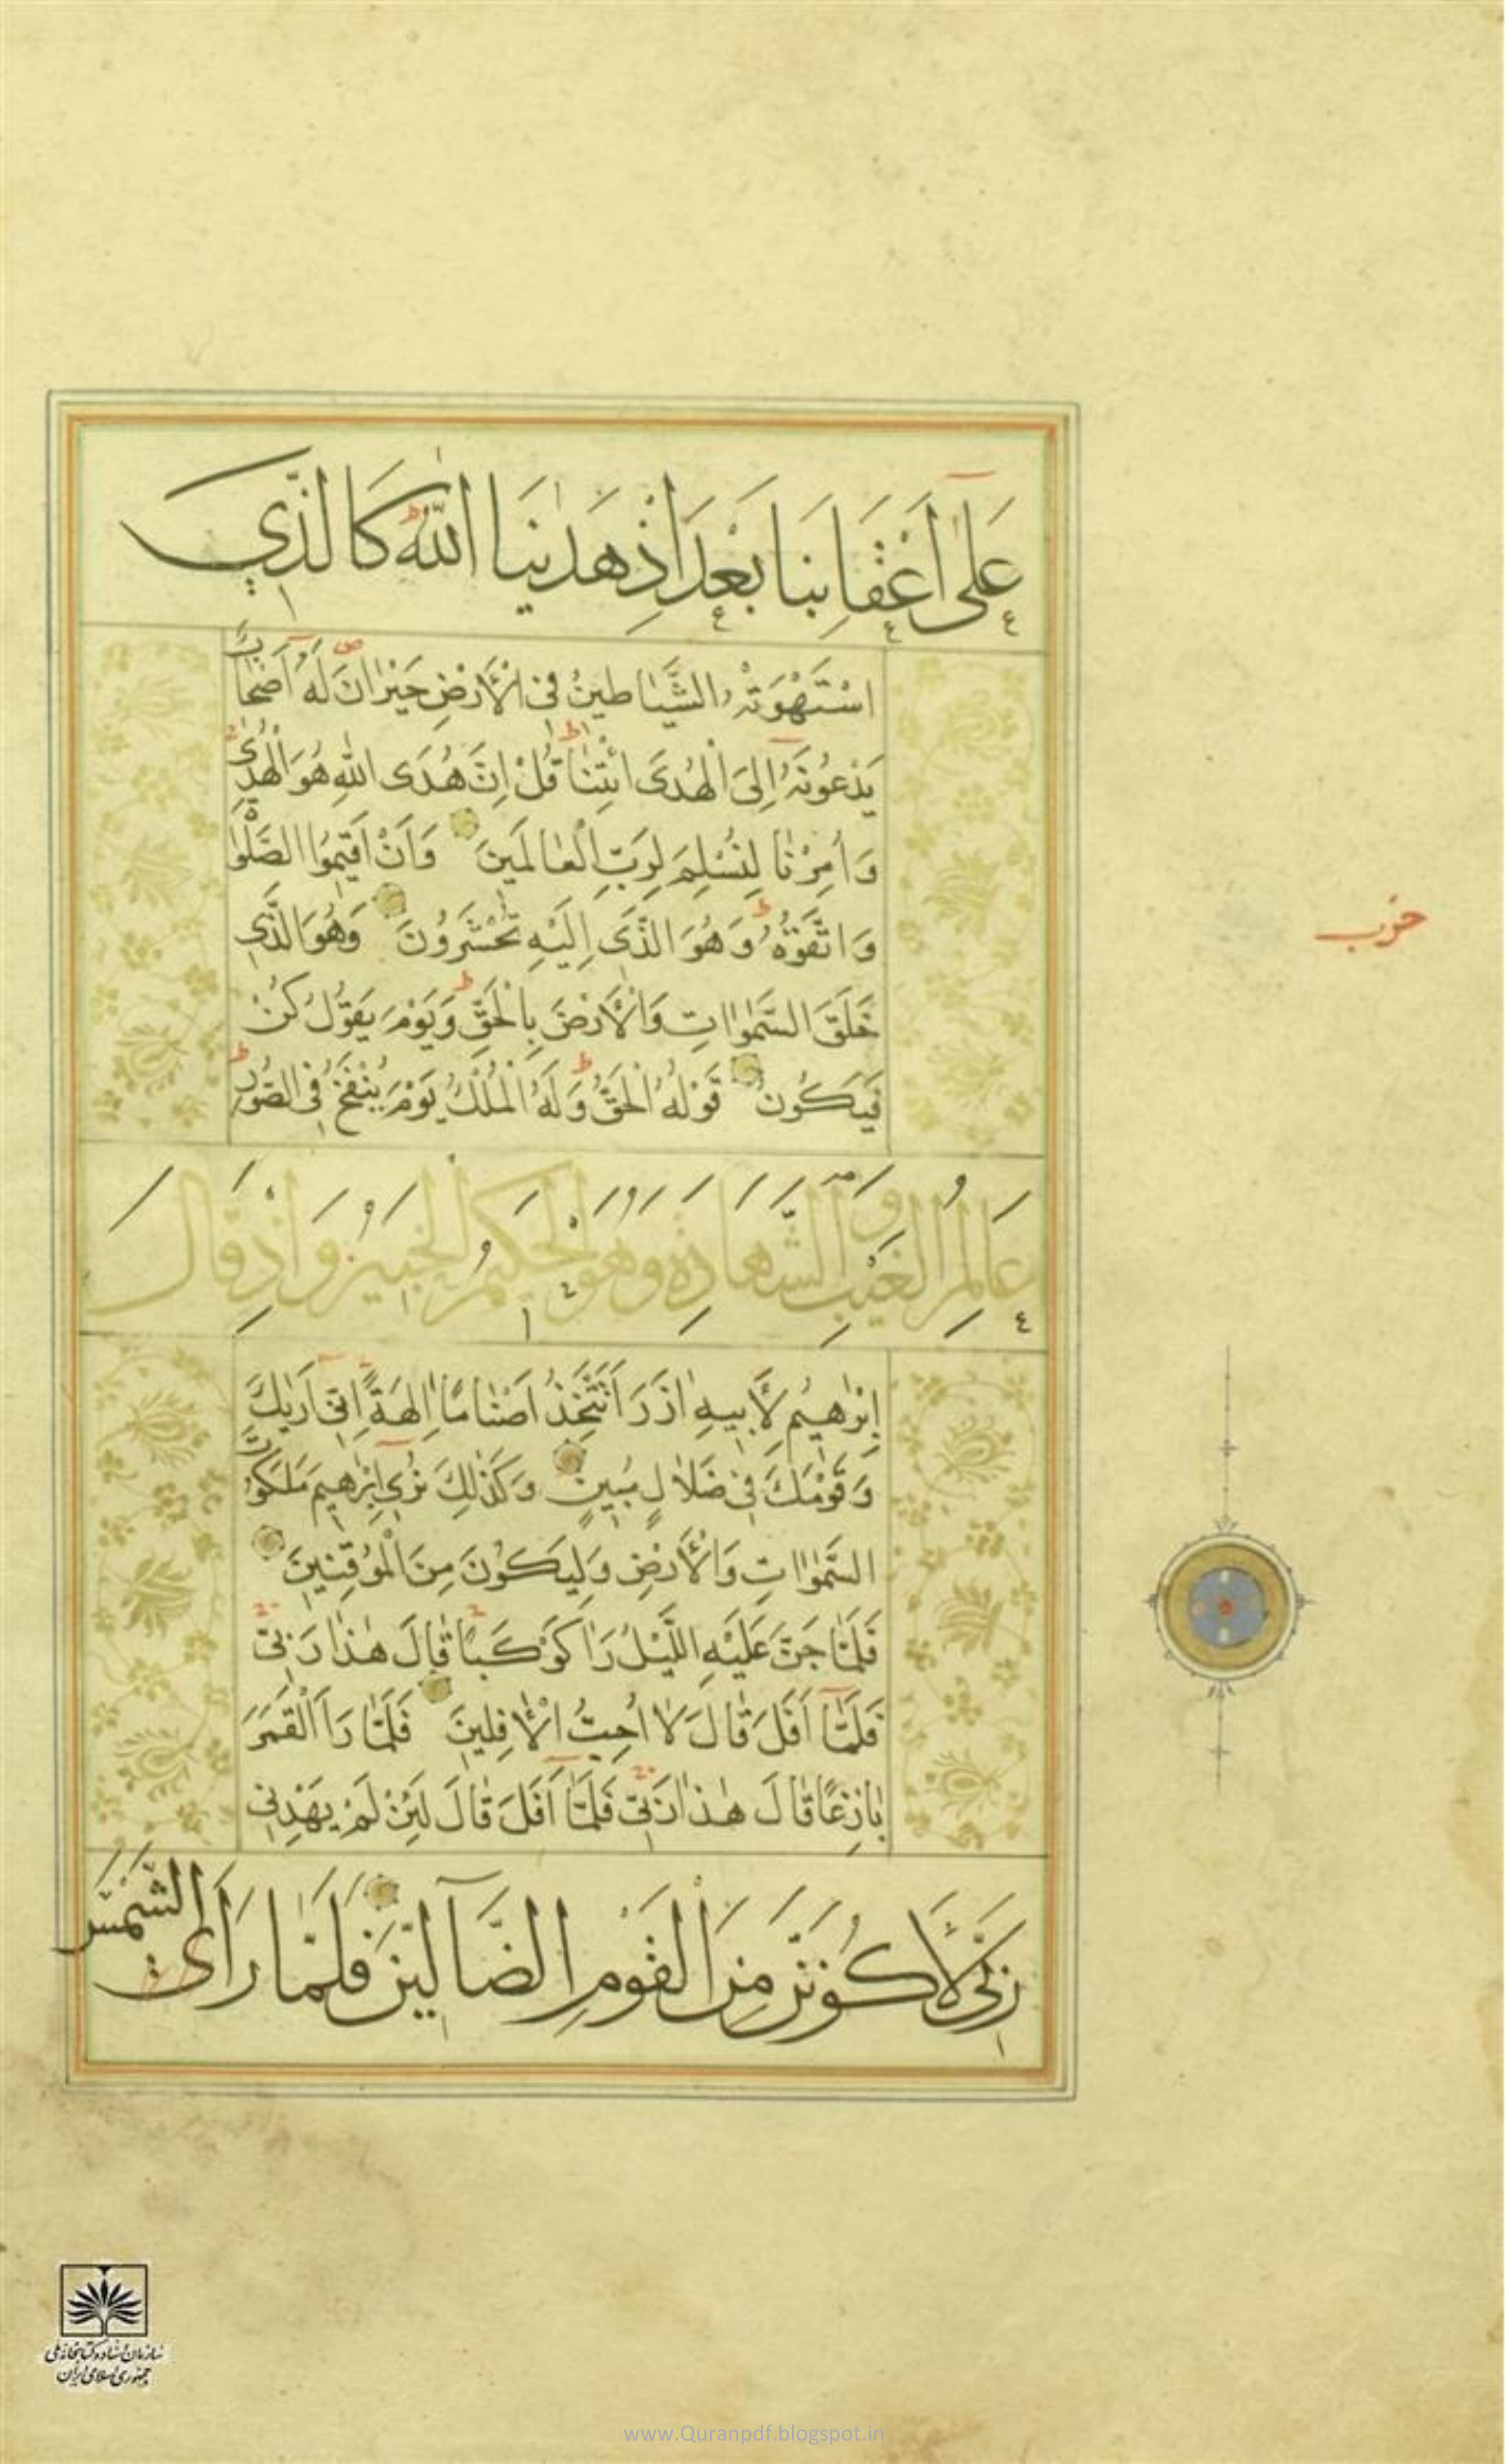 عَلٰى اَعْقَابِنَا بَعْدَ اِذْ هَدٰينَا اللّٰهُ كَالَّذِي
اسْتَهْوَتْهُ الشَّيَاطِينُ فِى الْاَرْضِ حَيْرَانَ لَهُ اَصْحَابٌ
يَدْعُونَهُ اِلَى الْهُدَى ائْتِنَا قُلْ اِنَّ هُدَى اللّٰهِ هُوَ الْهُدٰى
وَاُمِرْنَا لِنُسْلِمَ لِرَبِّ الْعَالَمِينَ وَاَنْ اَقِيمُوا الصَّلٰوةَ
وَاتَّقُوْهُ وَهُوَ الَّذِى اِلَيْهِ تُحْشَرُونَ وَهُوَ الَّذِي
خَلَقَ السَّمٰوَاتِ وَالْاَرْضَ بِالْحَقِّ وَيَوْمَ يَقُولُ كُنْ
فَيَكُونُ قَوْلُهُ الْحَقُّ وَلَهُ الْمُلْكُ يَوْمَ يُنْفَخُ فِى الصُّورِ
عَالِمُ الْغَيْبِ وَالشَّهَادَةِ وَهُوَ الْحَكِيمُ الْخَبِيرُ وَاِذْ قَالَ
اِبْرٰهِيمُ لِاَبِيهِ اٰزَرَ اَتَتَّخِذُ اَصْنَامًا اٰلِهَةً اِنِّى اَرٰيكَ
وَقَوْمَكَ فِى ضَلَالٍ مُبِينٍ وَكَذٰلِكَ نُرِي اِبْرٰهِيمَ مَلَكُوتَ
السَّمٰوَاتِ وَالْاَرْضِ وَلِيَكُونَ مِنَ الْمُوقِنِينَ
فَلَمَّا جَنَّ عَلَيْهِ اللَّيْلُ رَاٰ كَوْكَبًا قَالَ هٰذَا رَبِّى
فَلَمَّا اَفَلَ قَالَ لَا اُحِبُّ الْاٰفِلِينَ فَلَمَّا رَاَ الْقَمَرَ
بَازِغًا قَالَ هٰذَا رَبِّى فَلَمَّا اَفَلَ قَالَ لَئِنْ لَمْ يَهْدِنِى
رَبِّى لَاَكُونَنَّ مِنَ الْقَوْمِ الضَّآلِّينَ فَلَمَّا رَاَى الشَّمْسَ
حزب
سازمان اسناد و کتابخانه ملی
جمهوری اسلامی ایران
www.Quranpdf.blogspot.in